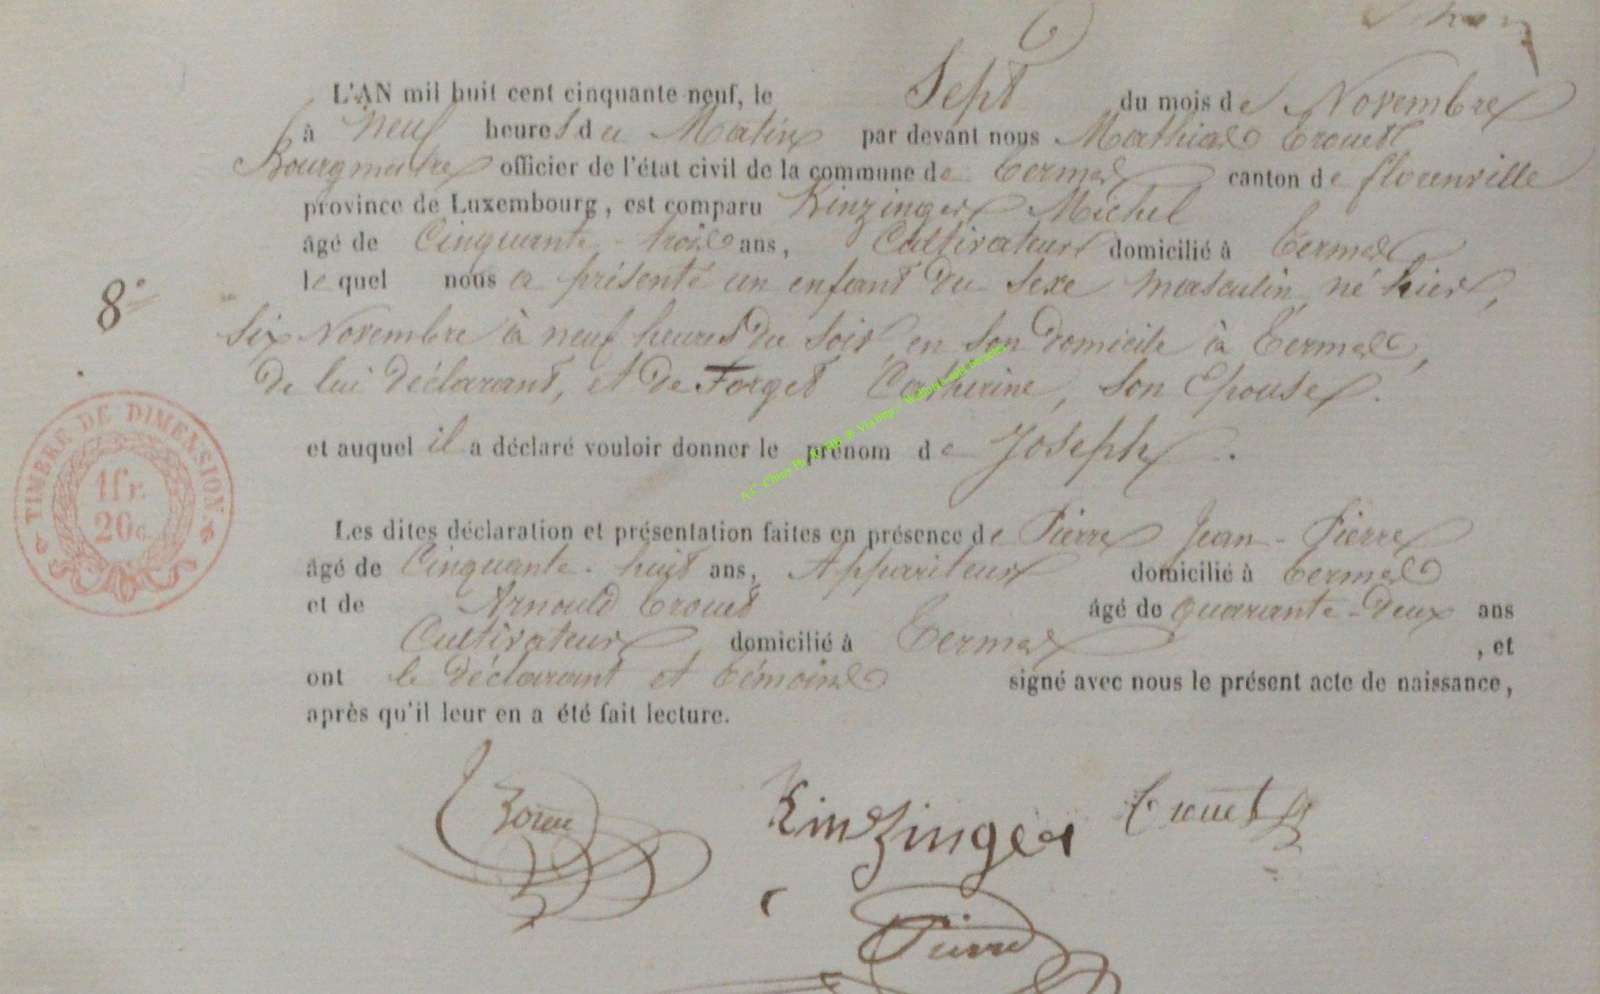 L'AN mil huit cent cinquante-neuf, le Sept du mois de Novembre
à Neuf heures du Matin par devant nous Mathias Trouet
Bourgmestre officier de l'état civil de la commune de Termes canton de florenville
province de Luxembourg, est comparu Kinzinger Michel
âgé de Cinquante-trois ans, Cultivateur domicilié à Termes
le quel nous a présenté un enfant du sexe masculin, né hier,
8°
six Novembre à neuf heures du soir, en son domicile à Termes,
de lui déclarant, et de Forget Catherine, son Epouse.
et auquel il a déclaré vouloir donner le prénom de Joseph.
TIMBRE DE DIMENSION
1 fr.
20 c.
Les dites déclaration et présentation faites en présence de Pierre Jean-Pierre
âgé de Cinquante-huit ans, Appariteur domicilié à Termes
et de Arnould Trouet âgé de Quarante-Deux ans
Cultivateur domicilié à Termes, et
ont le déclarant et témoins signé avec nous le présent acte de naissance,
après qu'il leur en a été fait lecture.
Kinzinger Trouet
Pierre